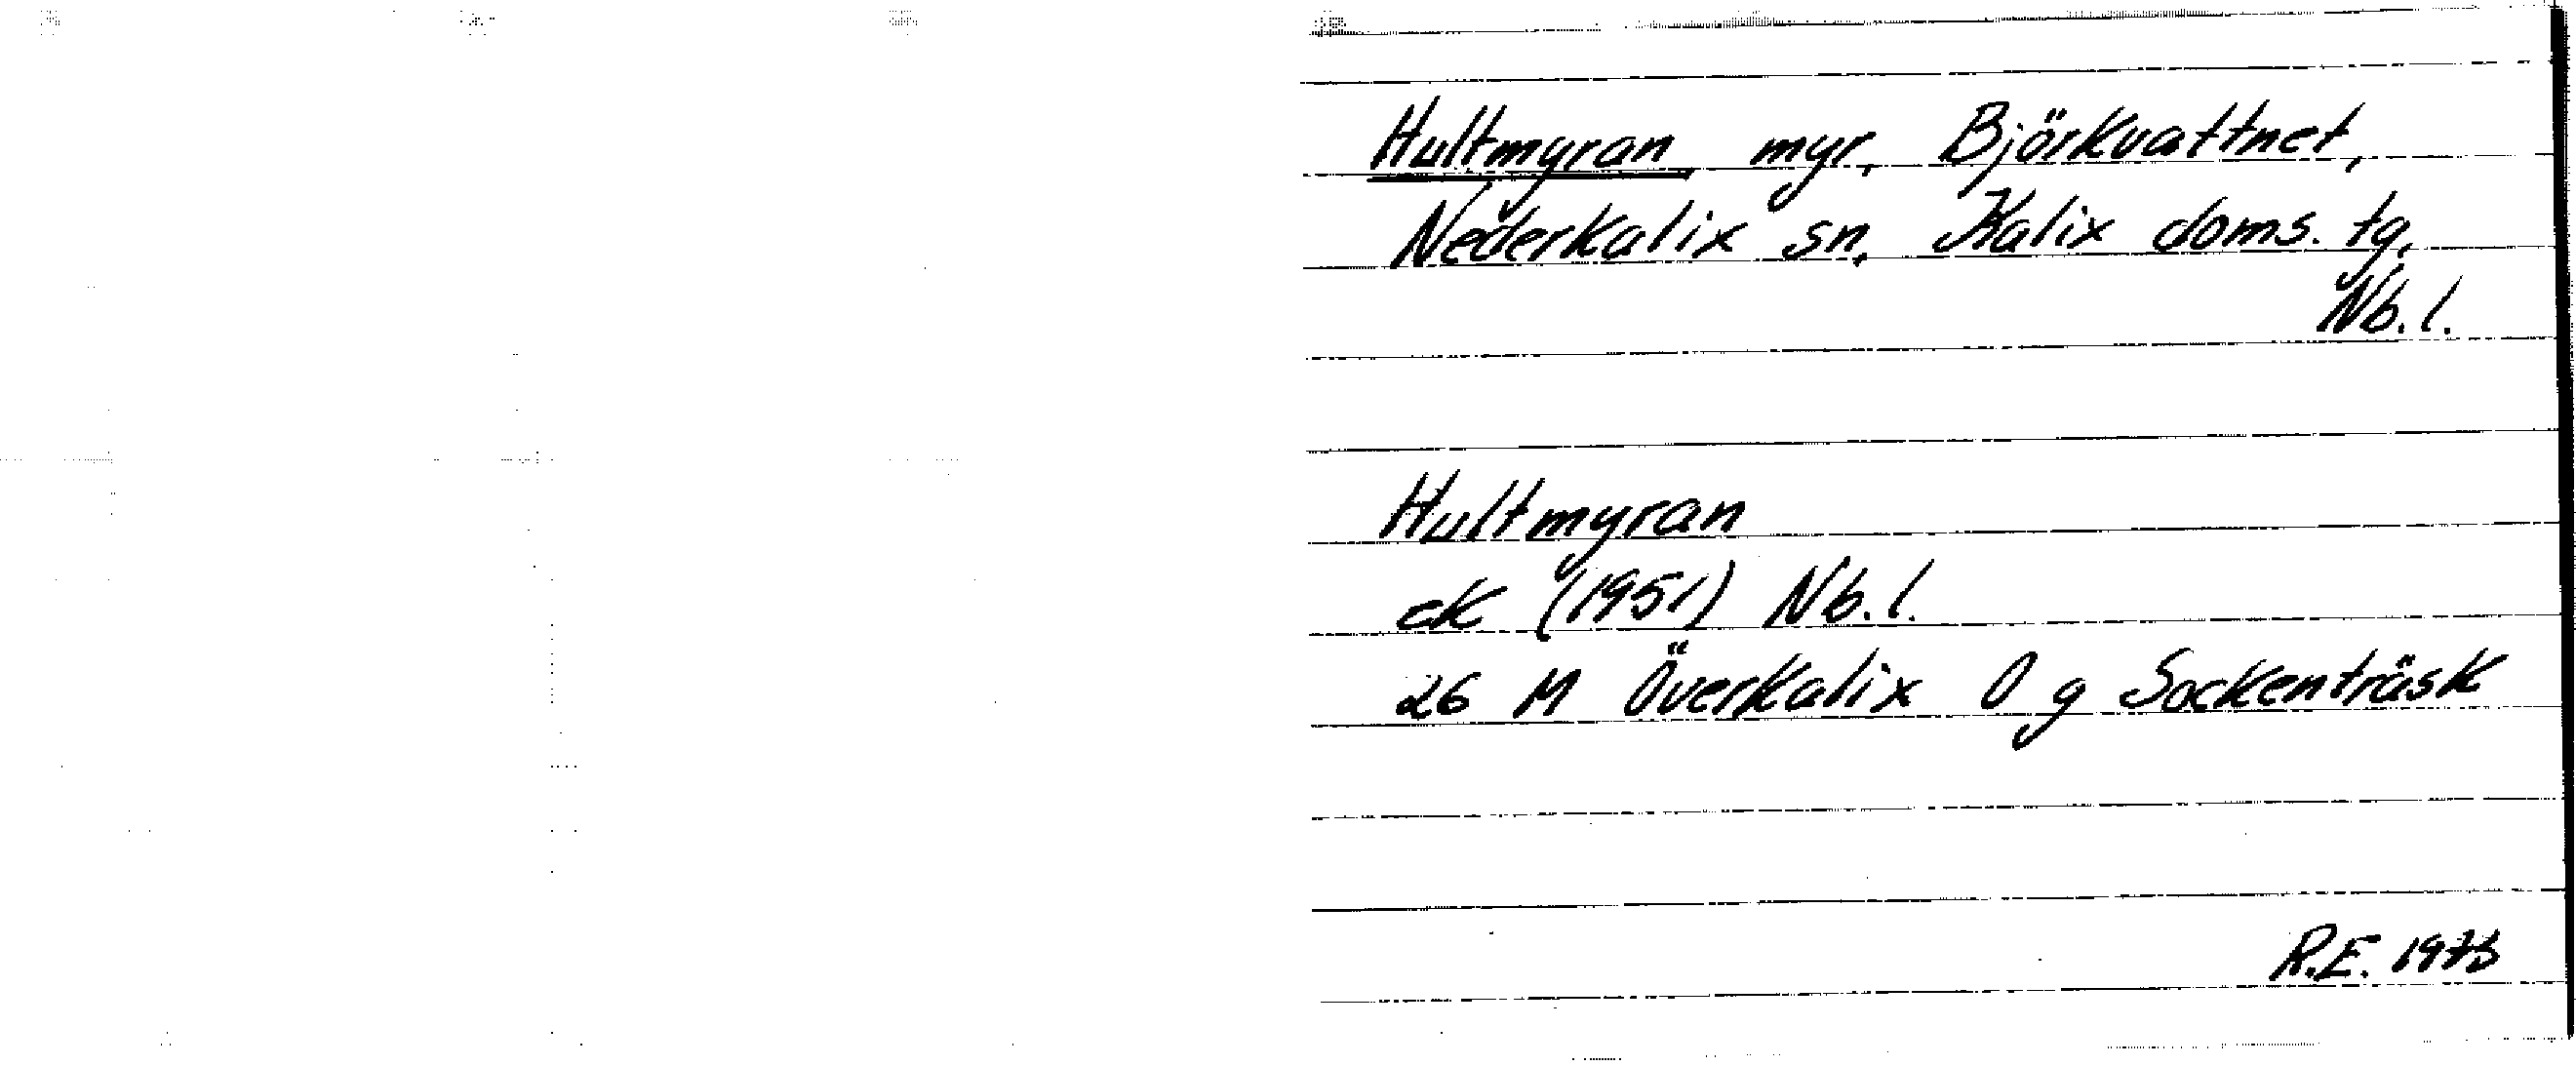 Hultmyran, myr, Björkvattnet,
Nederkalix sn, Kalix doms. tg,
Nb.l.
Hultmyran
ek (1951) Nb.l.
26 M Överkalix O g Sockenträsk
R.E. 1973